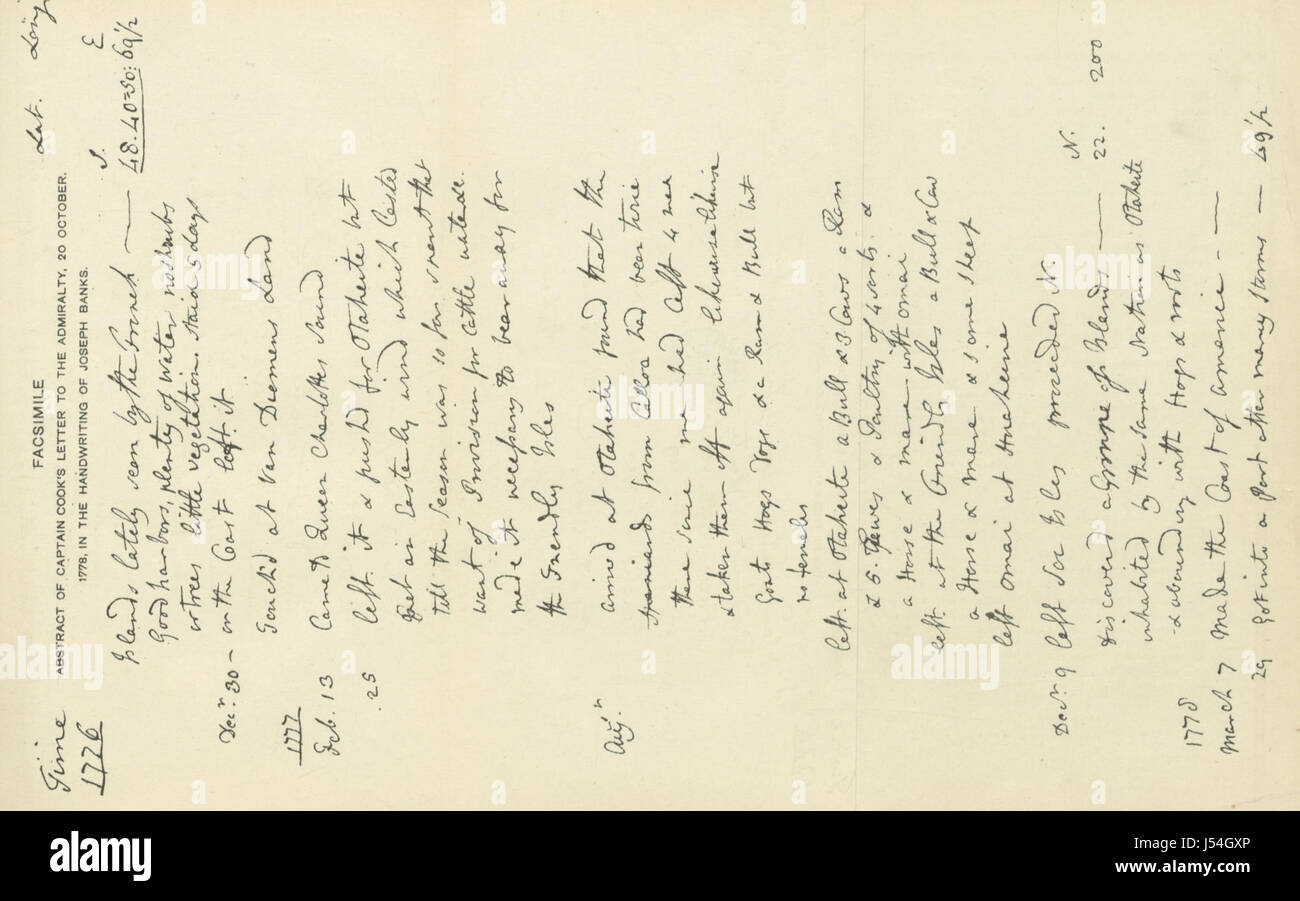 FACSIMILE
ABSTRACT OF CAPTAIN COOK'S LETTER TO THE ADMIRALTY, 20 OCTOBER.
1778, IN THE HANDWRITING OF JOSEPH BANKS.
Time Lat. Long
1776 S. E
Islands lately seen by the french — 48.40=50: 69½
Good harbors, plenty of water no shrubs
or trees little vegetation. Staid 5 days
Decr. 30 – on the Coast left it
Touch'd at Van Diemens Land
1777
Feb. 13 Came to Queen Charlottes Sound
.25 left it & push'd for Otaheite but
met an Easterly wind which lasted
till the Season was so far spent that
want of Provision for Cattle water &c.
made it necessary to bear away for
the Friendly Isles
Aug. arived at Otaheite found that the
Spaniards from Calloa had been twice
there since we had left 4 men
& taken them off again likewise
Goats Hogs Dogs & a Ram & Bull but
no females
left. at Otaheite a Bull & 3 Cows a Ram
& 5 Ewes & Poultry of 4 sorts. &
a Horse & mare with Omai
left. at the Friendly Isles a Bull & Cow
a Horse & Mare & some sheep
left Omai at Huaheine
Decr. 9 left Soc Isles proceeded N. N.
Discovered a Groupe of Islands — 22. 200
inhabited by the same Nation as Otaheite
& abounding with Hogs & roots
1778
March 7 Made the Coast of america —
29 Got into a Port after many Storms — 49½
alamy
Image ID: J54GXP
www.alamy.com